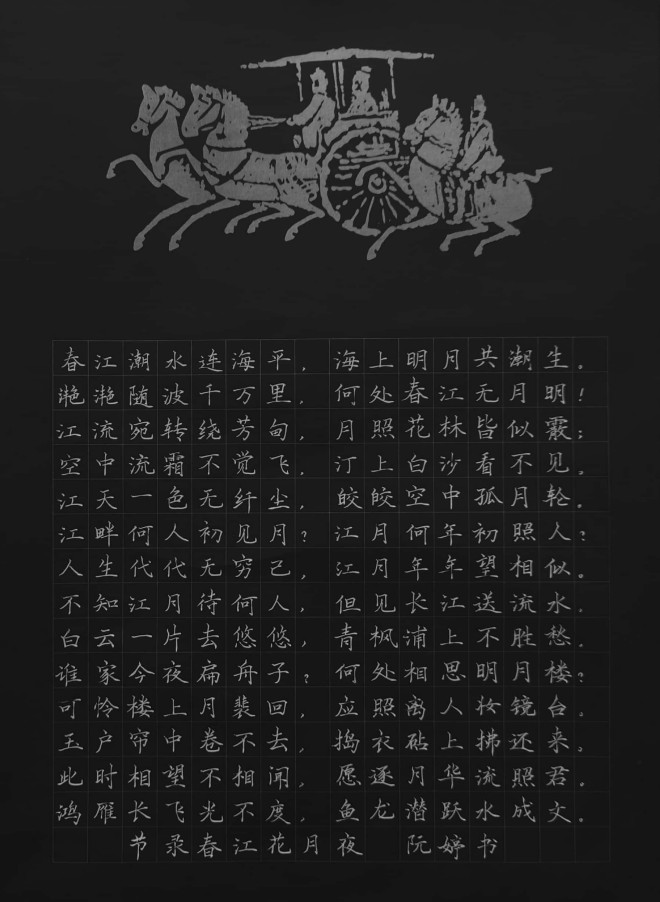 春江潮水连海平，海上明月共潮生。
滟滟随波千万里，何处春江无月明！
江流宛转绕芳甸，月照花林皆似霰；
空中流霜不觉飞，汀上白沙看不见。
江天一色无纤尘，皎皎空中孤月轮。
江畔何人初见月？江月何年初照人？
人生代代无穷已，江月年年望相似。
不知江月待何人，但见长江送流水。
白云一片去悠悠，青枫浦上不胜愁。
谁家今夜扁舟子？何处相思明月楼？
可怜楼上月裴回，应照离人妆镜台。
玉户帘中卷不去，捣衣砧上拂还来。
此时相望不相闻，愿逐月华流照君。
鸿雁长飞光不度，鱼龙潜跃水成文。
节录春江花月夜 阮婷书